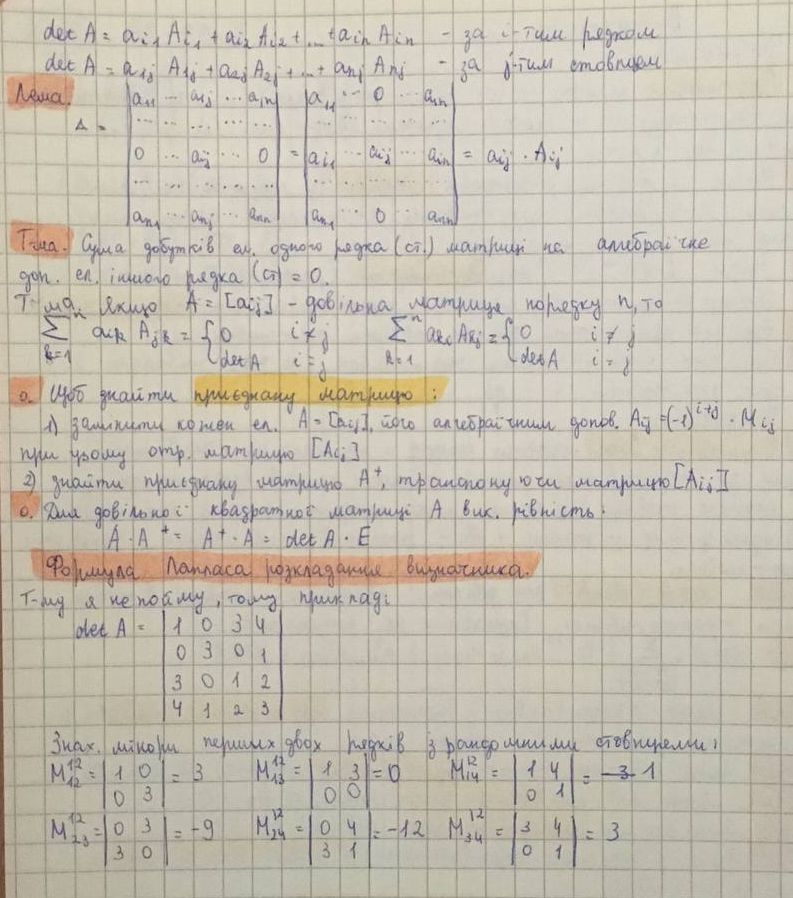 det A = ai1 Ai1 + ai2 Ai2 + ... + ain Ain - за i-тим рядком
det A = a1j A1j + a2j A2j + ... + anj Anj - за j-тим стовпцем
Лема.
| a11 ... a1j ... a1n | | a11 ... 0 ... ann |
| ... ... ... | | ... ... ... |
Δ = | 0 ... aij ... 0 | = | ai1 ... aij ... ain | = aij · Aij
| ... ... ... | | ... ... ... |
| an1 ... anj ... ann | | an1 ... 0 ... ann |
Т-ма. Сума добутків ел. одного рядка (ст.) матриці на алгебраїчне
доп. ел. іншого рядка (ст) = 0.
Т-ма. Якщо A = [aij] - довільна матриця порядку n, то
∑ⁿk=1 aik Ajk = { 0 i ≠ j ; det A i = j ∑ⁿk=1 aki Akj = { 0 i ≠ j ; det A i = j
о. Щоб знайти приєднану матрицю:
1) замінити кожен ел. A = [aij], його алгебраїчним допов. Aij = (-1)^i+j · Mij
при цьому отр. матрицю [Aij]
2) знайти приєднану матрицю A⁺, транспонуючи матрицю [Aij]
о. Для довільної квадратної матриці A вик. рівність:
A · A⁺ = A⁺ · A = det A · E
Формула Лапласа розкладання визначника.
Т-му я не пойму, тому приклад:
det A = | 1 0 3 4 |
| 0 3 0 1 |
| 3 0 1 2 |
| 4 1 2 3 |
Знах. мінори перших двох рядків з рандомними стовпцями:
M¹²₁₂ = | 1 0 | = 3 M¹²₁₃ = | 1 3 | = 0 M¹²₁₄ = | 1 4 | = 1
| 0 3 | | 0 0 | | 0 1 |
M¹²₂₃ = | 0 3 | = -9 M¹²₂₄ = | 0 4 | = -12 M¹²₃₄ = | 3 4 | = 3
| 3 0 | | 3 1 | | 0 1 |